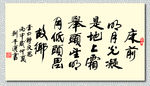 床前
明月光疑
是地上霜
舉頭望明
月低頭思
故鄉